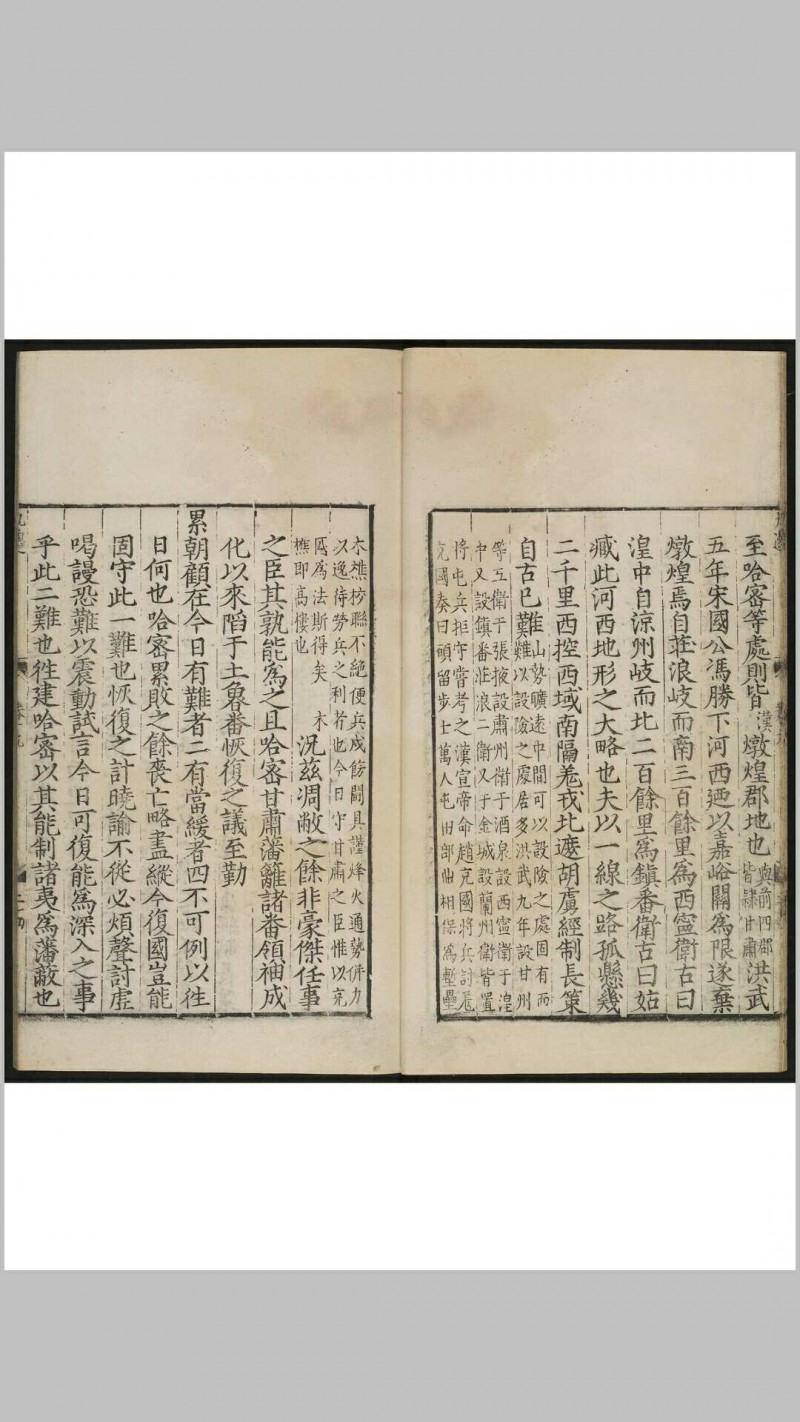 至哈密等處則皆漢燉煌郡地也與前四郡皆隸甘肅洪武
五年宋國公馮勝下河西廼以嘉峪關為限遂棄
燉煌焉自莊浪岐而南三百餘里為西寧衛古曰
湟中自涼州岐而北二百餘里為鎮番衛古曰姑
臧此河西地形之大略也夫以一線之路孤懸幾
二千里西控西域南隔羌戎北遮胡虜經制長策
自古已難山勢曠遠中間可以設險之處固有而
難以設險之處居多洪武九年設甘州
等五衛于張掖設肅州衛于酒泉設西寧衛于湟
中又設鎮番莊浪二衛又于金城設蘭州衛皆置
將屯兵拒守嘗考之漢宣帝命趙充國將兵討羌
充國奏曰頭留步士萬人屯田部曲相保為塹壘
木樵校聯不絕便兵成飭鬬具謹烽火通勢併力
以逸待勞兵之利者也今日守甘肅之臣惟以充
國為法斯得矣木
樵即高樓也
況茲凋敝之餘非豪傑任事
之臣其孰能為之且哈密甘肅藩籬諸番領袖成
化以來陷于土魯番恢復之議至勤
累朝顧在今日有難者二有當緩者四不可例以徃
日何也哈密累敗之餘喪亡略盡縱今復國豈能
固守此一難也恢復之計曉諭不從必煩聲討虛
喝謾恐難以震動試言今日可復能為深入之事
乎此二難也徃建哈密以其能制諸夷為藩蔽也